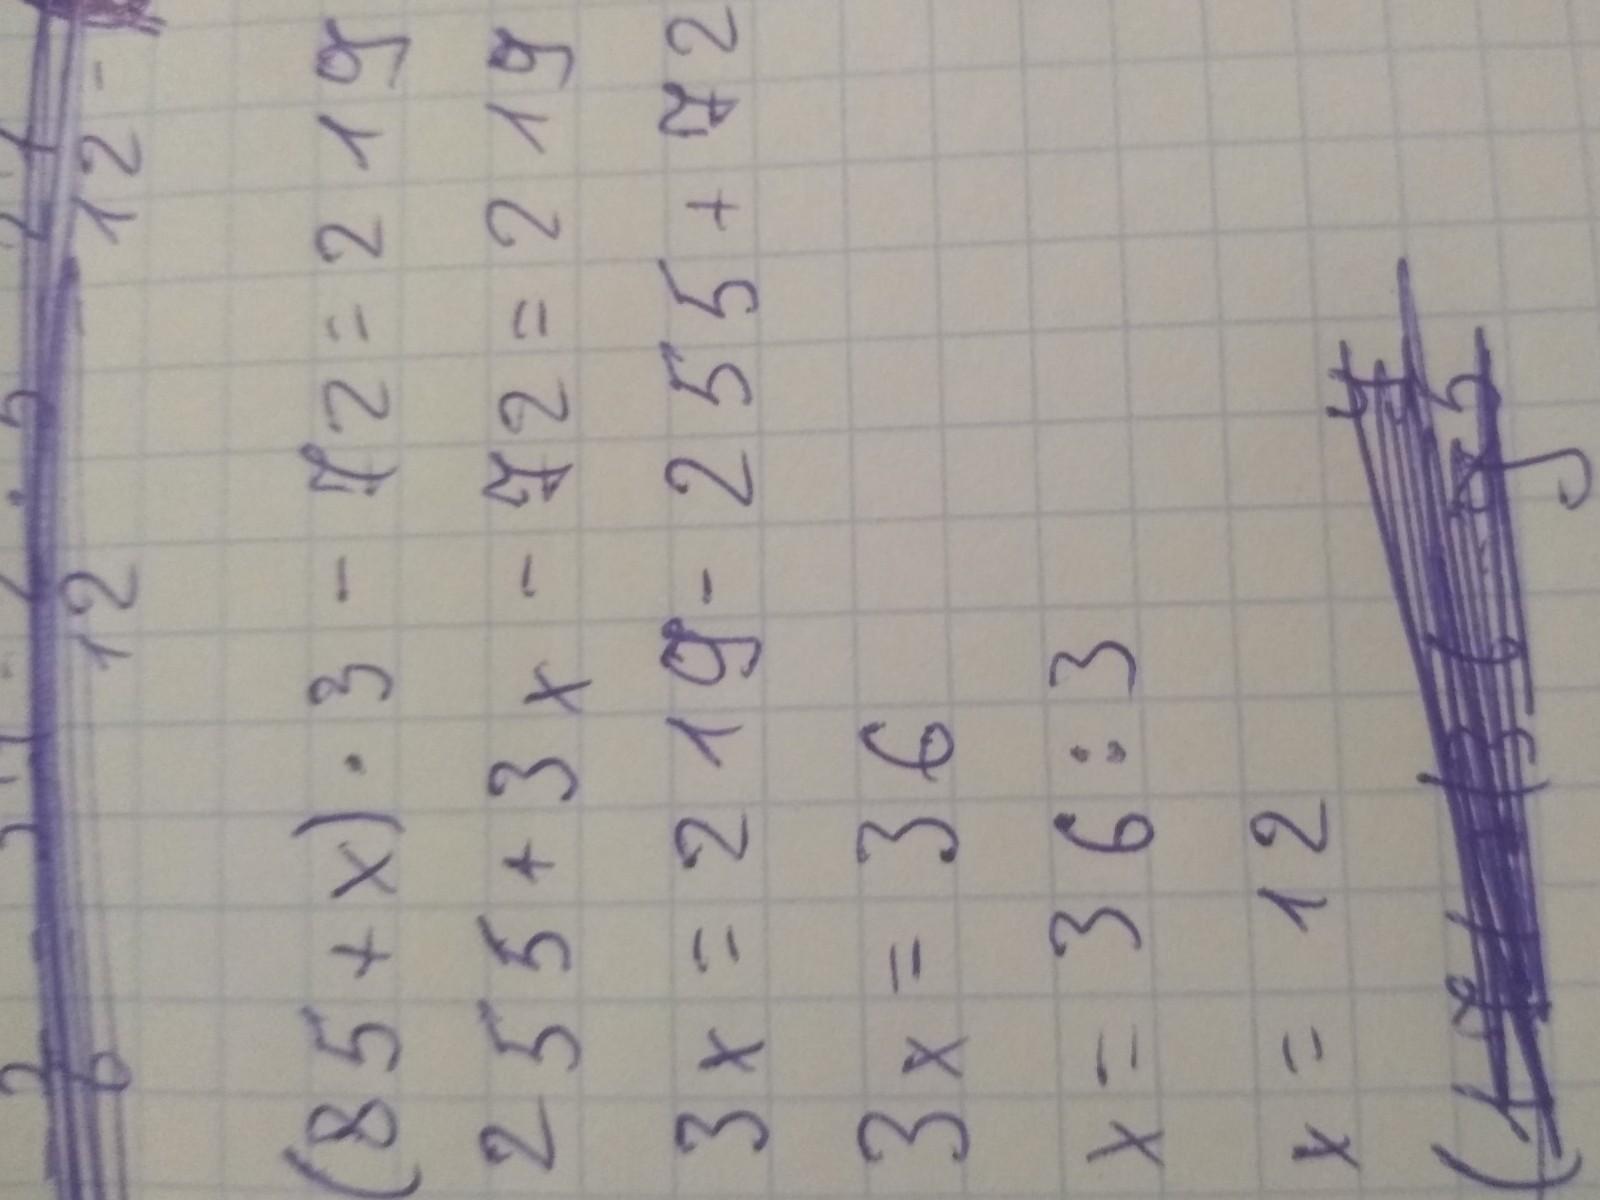 (85+x)·3-72=219
255+3x-72=219
3x=219-255+72
3x=36
x=36:3
x=12